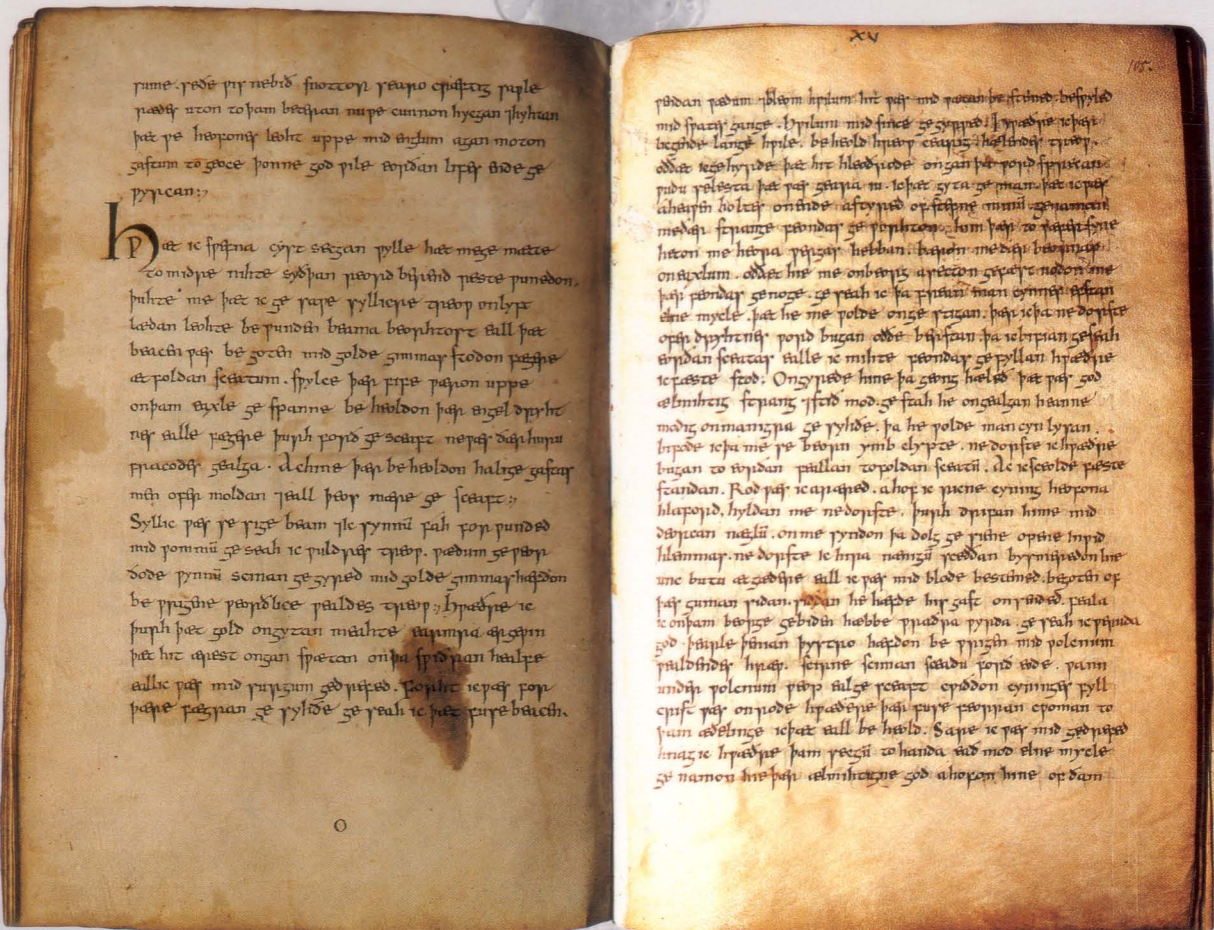 rume ræde ƿis ne bið snottor searo cræftig saƿle
rædes uton to þam beteran nu ƿe cunnon hycgan ⁊ hyhtan
þæt ƿe heofones leoht uppe mid englum agan moton
gastum to geoce þonne god ƿile eorðan lifes ende ge
ƿyrcan:,
Hƿæt ic sƿefna cyst secgan ƿylle hæt mege mætte
to midre nihte syðþan reord berend reste ƿunedon.
þuhte me þæt ic ge saƿe syllicre treoƿ on lyft
lædan leohte be ƿunden beama beorhtost eall þæt
beacen ƿæs be goten mid golde gimmas stodon fægere
æt foldan sceatum. sƿylce þær fife ƿæron uppe
on þam eaxle ge spanne be heoldon þær engel dryht
nes ealle fægere þurh forð ge sceaft ne ƿæs ðær huru
fracodes gealga. Ac hine þær be heoldon halige gastas
men ofer moldan ⁊ eall þeos mære ge sceaft:,
Syllic ƿæs se sige beam ⁊ ic synnū fah for ƿunded
mid ƿommū ge seah ic ƿuldres treoƿ. ƿædum ge ƿeor
ðode ƿynnū scinan ge gyred mid golde gimmas hæfdon
be ƿrigene ƿeorðlice ƿealdes treoƿ:, hƿæðre ic
þurh þæt gold ongytan meahte earmra ærgeƿin
þæt hit ærest ongan sƿætan on þa sƿiðran healfe
eall ic ƿæs mid surgum gedrefed. forht ic ƿæs for
þære fægran ge syhðe ge seah ic þæt fuse beacen.
O
XV
105.
ƿendan ƿædum ⁊ bleom hƿilum hit ƿæs mid ƿætan be stemed. besyled
mid sƿates gange. hƿilum mid since ge gyrƿed. hƿæðre ic þær
licgende lange hƿile. be heold hreoƿ cearig hælendes treoƿ.
oððæt ic ge hyrde þæt hit hleoðrode ongan þa ƿord sprecan
ƿudu selesta þæt ƿæs geara iu. ic þæt gyta ge man. þæt ic ƿæs
aheaƿen holtes on ende astyred of stefne minū. genaman
me ðær strange feondas ge ƿorhton him þær to ƿæfersyne
heton me heora ƿergas hebban. bæron me ðær beornas
on eaxlum. oððæt hie me on beorg asetton gefæstnodon me
þær feondas genoge. ge seah ic þa frean man cynnes efstan
elne mycle. þæt he me ƿolde on ge stigan. þær ic þa ne dorste
ofer dryhtnes ƿord bugan oððe berstan þa ic bifian geseah
eorðan sceatas ealle ic mihte feondas gefyllan hƿæðre
ic fæste stod. Ongyrede hine þa geong hæleð þæt ƿæs god
ælmihtig strang ⁊ stið mod. ge stah he on gealgan heanne
modig on manigra ge syhðe. þa he ƿolde man cyn lysan.
bifode ic þa me se beorn ymb clypte. ne dorste ic hƿæðre
bugan to eorðan feallan to foldan sceatū. Ac ic sceolde fæste
standan. Rod ƿæs ic aræred. ahof ic ricne cyning heofona
hlaford. hyldan me ne dorste. þurh drifan hi me mid
deorcan næglū. on me syndon þa dolg ge siene opene inƿid
hlemmas. ne dorste ic hira nænigū sceððan bysmeredon hie
unc butu æt gædere eall ic ƿæs mid blode bestemed. begoten of
þæs guman sidan. siððan he hæfde his gast on sended. feala
ic on þam beorge gebiden hæbbe ƿraðra ƿyrda. ge seah ic ƿeruda
god þearle þenian þystro hæfdon be ƿrigen mid ƿolcnum
ƿealdendes hræƿ. scirne sciman sceadu forð eode. ƿann
under ƿolcnum ƿeop eal ge sceaft cƿiðdon cyninges fyll
crist ƿæs on rode hƿæðere þær fuse feorran cƿoman to
þam æðelinge ic þæt eall be heold. Sare ic ƿæs mid gedrefed
hnag ic hƿæðre þam secgū to handa eað mod elne mycle
ge namon hie þær ælmihtigne god ahofon hine of ðam